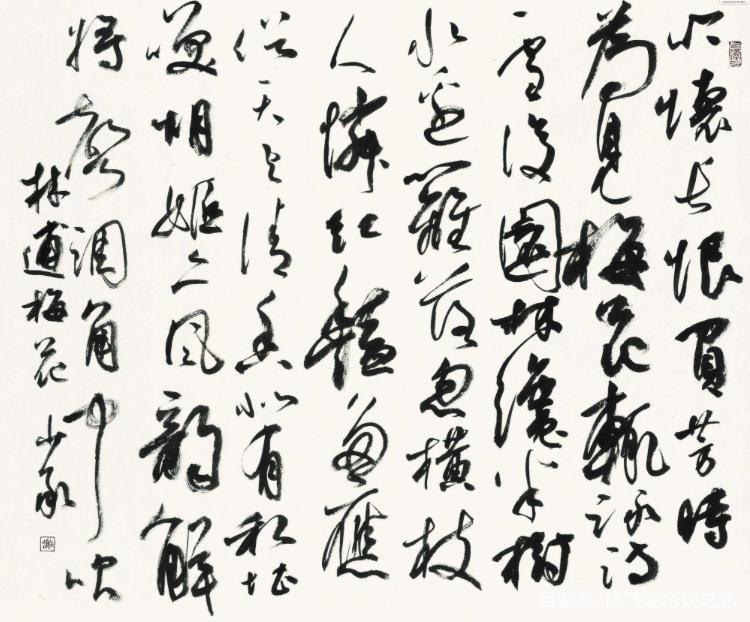 吟懷長恨負芳時
為見梅花輒詠詩
雪後園林纔半樹
水邊籬落忽橫枝
人憐紅艷多應
俗天與清香似有私堪
笑胡姬亦風韻解
將聲調角中吹
林逋梅花 少承
百家号/陈飞老师说艺术